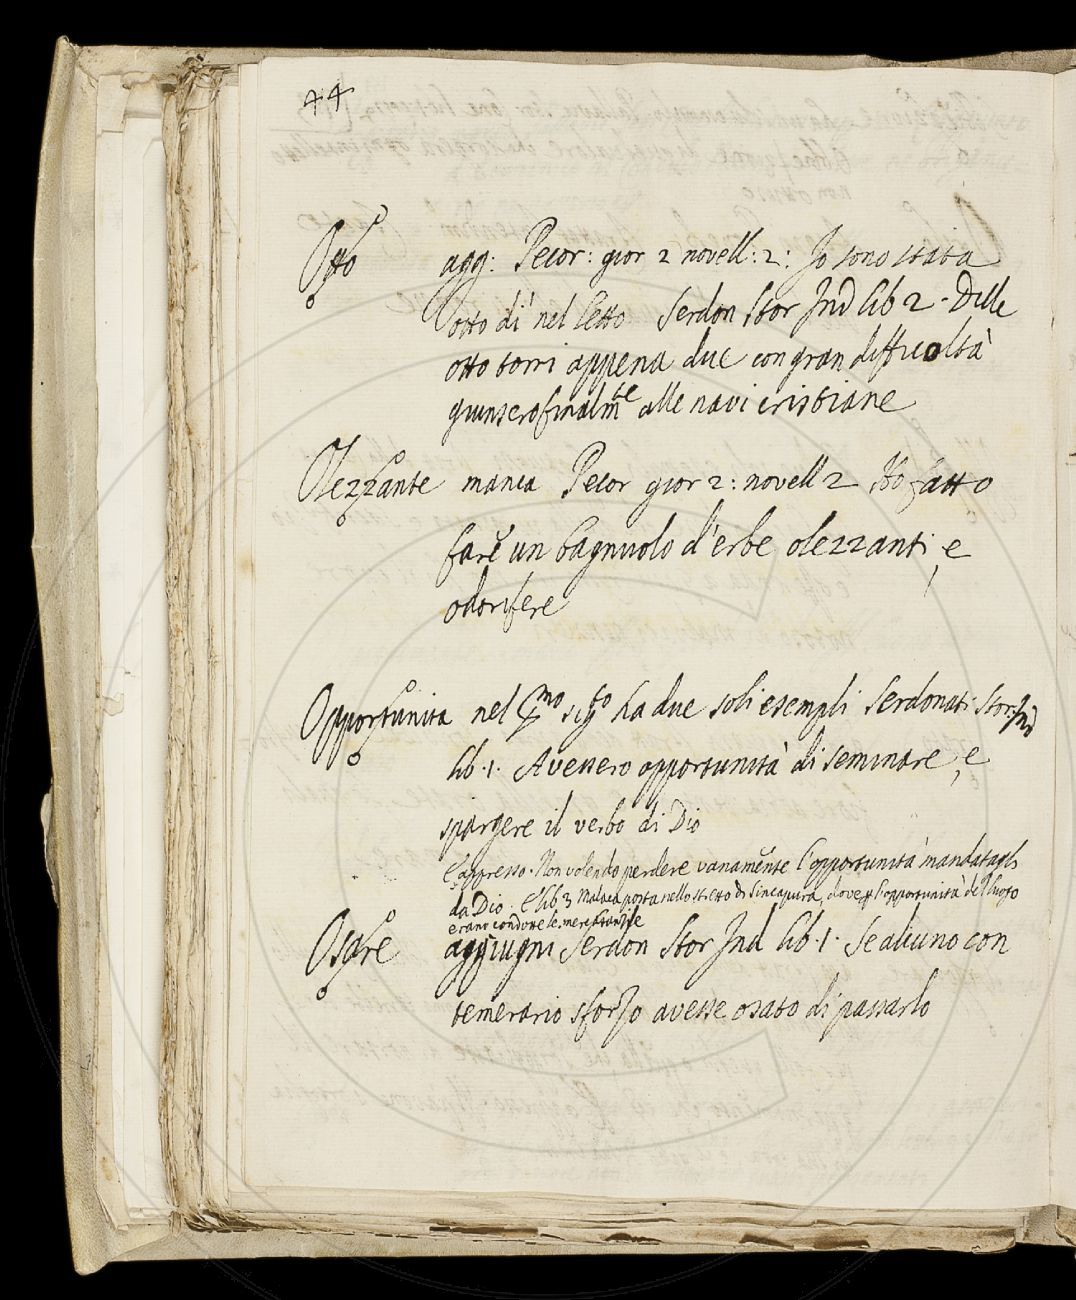 44
Otto agg: Pecor: gior 2 novell: 2: Io sono stata
otto dì nel letto Serdon Stor Ind lib 2. Delle
otto torri appena due con gran difficoltà
giunsero finalmte alle navi cristiane
Olezzante manca Pecor gior 2: novell 2 Ho fatto
fare un bagnuolo d'erbe olezzanti, e
odorifere
Opportunita nel pmo sigto ha due soli esempli Serdonati Stor Ind
lib. 1. Avessero opportunità di seminare, e
spargere il verbo di Dio
E appresso. Non volendo perdere vanamente l'opportunità mandatagli
da Dio. E lib 3 Malaca posta nello stretto di Sincapura, dove p l'opportunità del luogo
erano condotte le mercatanzie
Osare aggiugni Serdon Stor Ind lib. 1. Se alcuno con
temerario sforzo avesse osato di passarlo